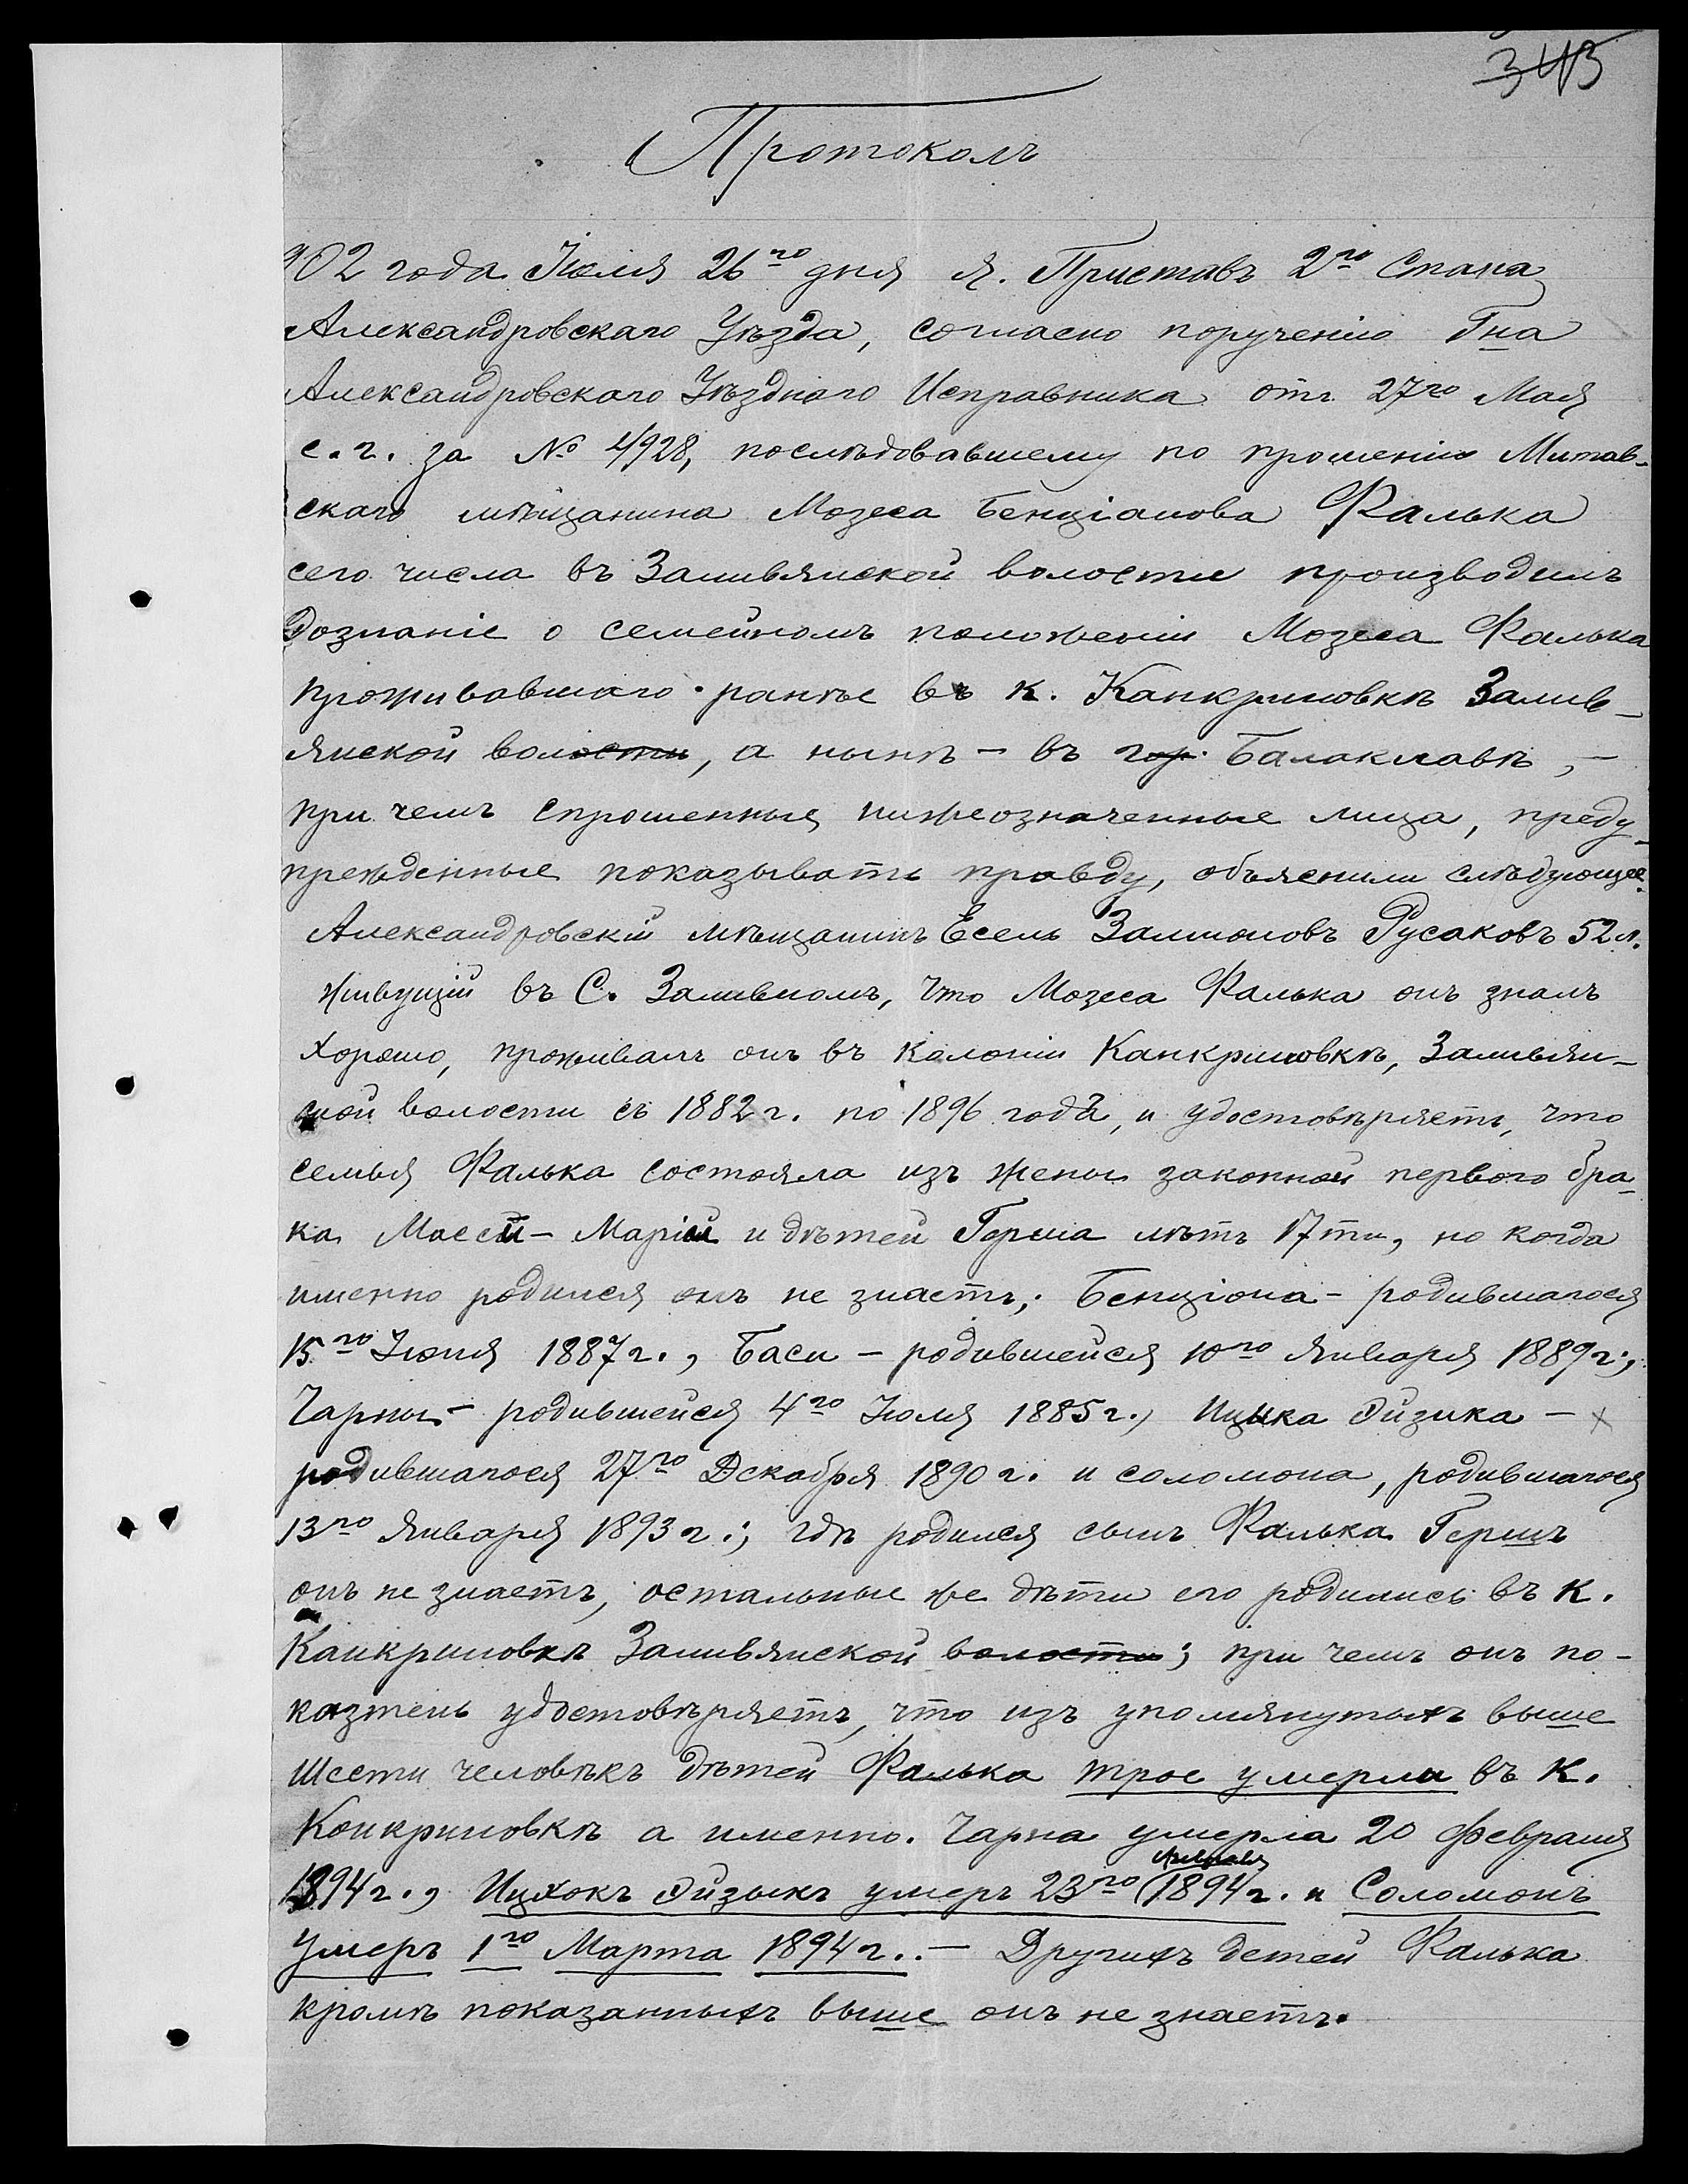 343
Протоколъ
902 года Іюля 26го дня я. Приставъ 2го Стана
Александровскаго Уѣзда, согласно порученію Гна
Александровскаго Уѣзднаго Исправника отъ 27го Мая
с.г. за № 4928, послѣдовавшему по прошенію Митав-
скаго мѣщанина Мозеса Бенціанова Фалька
сего числа въ Заливянской волости производилъ
Дознаніе о семейномъ положеніи Мозеса Фалька
проживавшаго ранѣе въ к. Канкриновкѣ Залив-
янской волости, а нынѣ - въ гор. Балаклавѣ, -
при чемъ спрошенные нижеозначенные лица, преду-
прежденные показывать правду, объяснили слѣдующее:
Александровскій мѣщанинъ Есель Залмоновъ Русаковъ 52 л.
живущій въ С. Заливномъ, что Мозеса Фалька онъ зналъ
хорошо, проживалъ онъ въ колоніи Канкриновкѣ, Заливян-
ской волости съ 1882 г. по 1896 года, и удостовѣряетъ, что
семья Фалька состояла изъ жены законной первого бра-
ка Масси - Маріи и дѣтей Герша лѣтъ 17ти, но когда
именно родился онъ не знаетъ; Бенціона - родившагося
15го Іюня 1887 г., Баси - родившейся 10го Января 1889 г.,
Чарны - родившейся 4го Іюля 1885 г., Ицыка Эйзика - х
родившагося 27го Декабря 1890 г. и соломона, родившагося
13го Января 1893 г.; гдѣ родился сынъ Фалька Гершъ
онъ не знаетъ, остальные же дѣти его родились въ к.
Канкриновкѣ Заливянской волости; при чемъ онъ по-
казтель удостовѣряетъ, что изъ упомянутыхъ выше
шести человѣкъ дѣтей Фалька трое умерли въ к.
Конкриновкѣ а именно. Чарна умерла 20 Февраля
1894 г., Ицхокъ Эйзыкъ умеръ 23го 1894 г. и Соломонъ
умеръ 1го Марта 1894 г.. - Другихъ детей Фалька
кромѣ показанныхъ выше онъ не знаетъ.